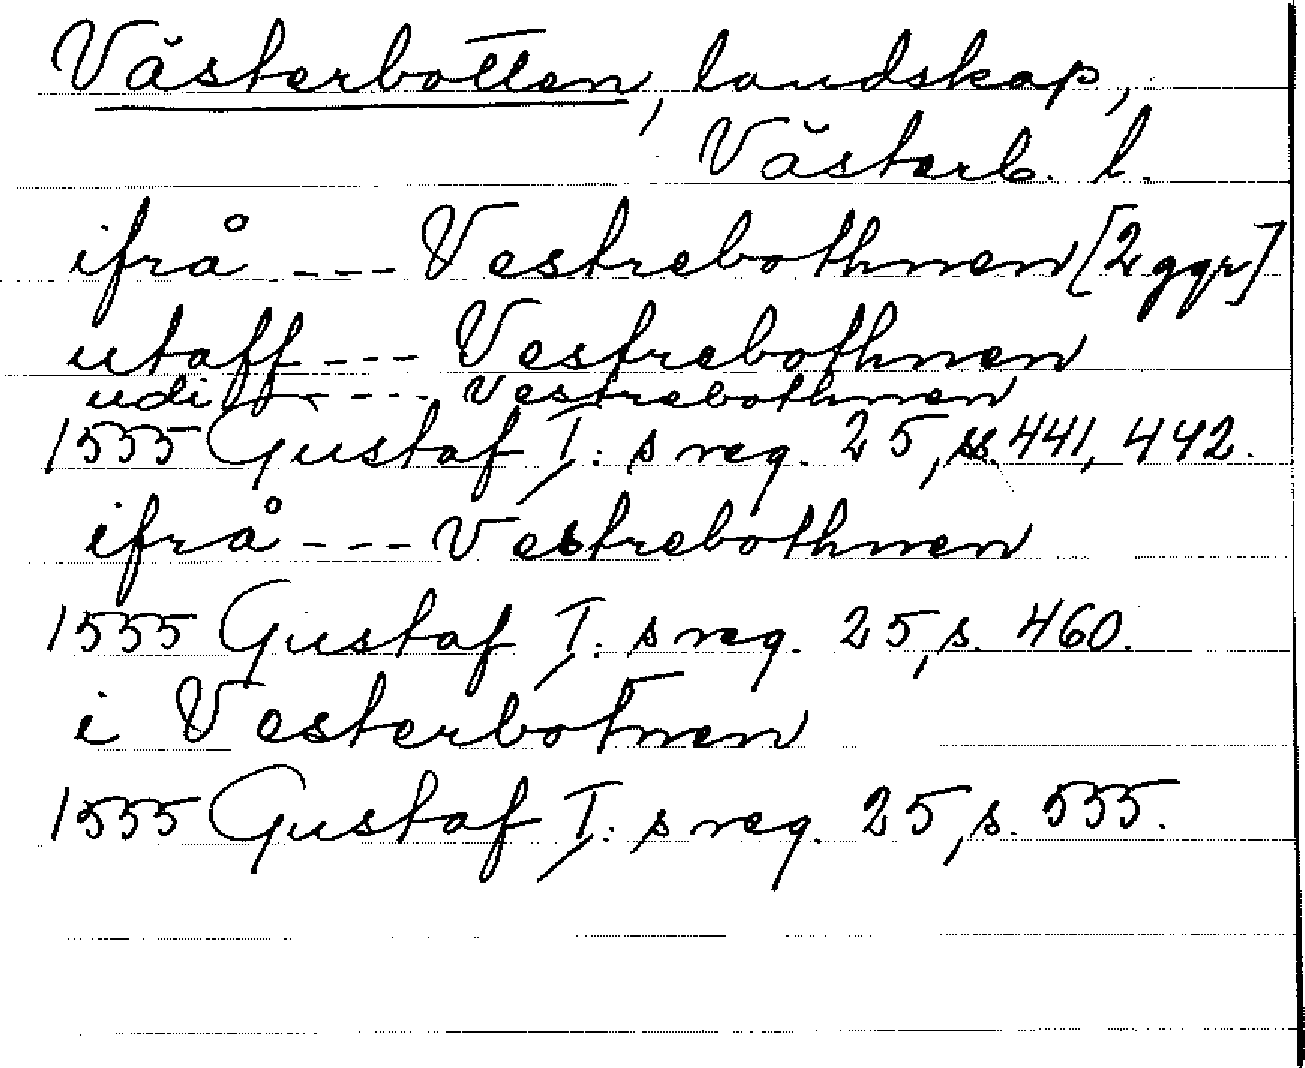 Västerbotten, landskap,
Västerb. l.
ifrå --- Vestrebothnen [2 ggr]
utaff --- Vestrebothnen
udi --- Vestrebothnen
1555 Gustaf I:s reg. 25, ss. 441, 442.
ifrå --- Vestrebothnen
1555 Gustaf I:s reg. 25, s. 460.
i Vesterbotnen
1555 Gustaf I:s reg. 25, s. 555.